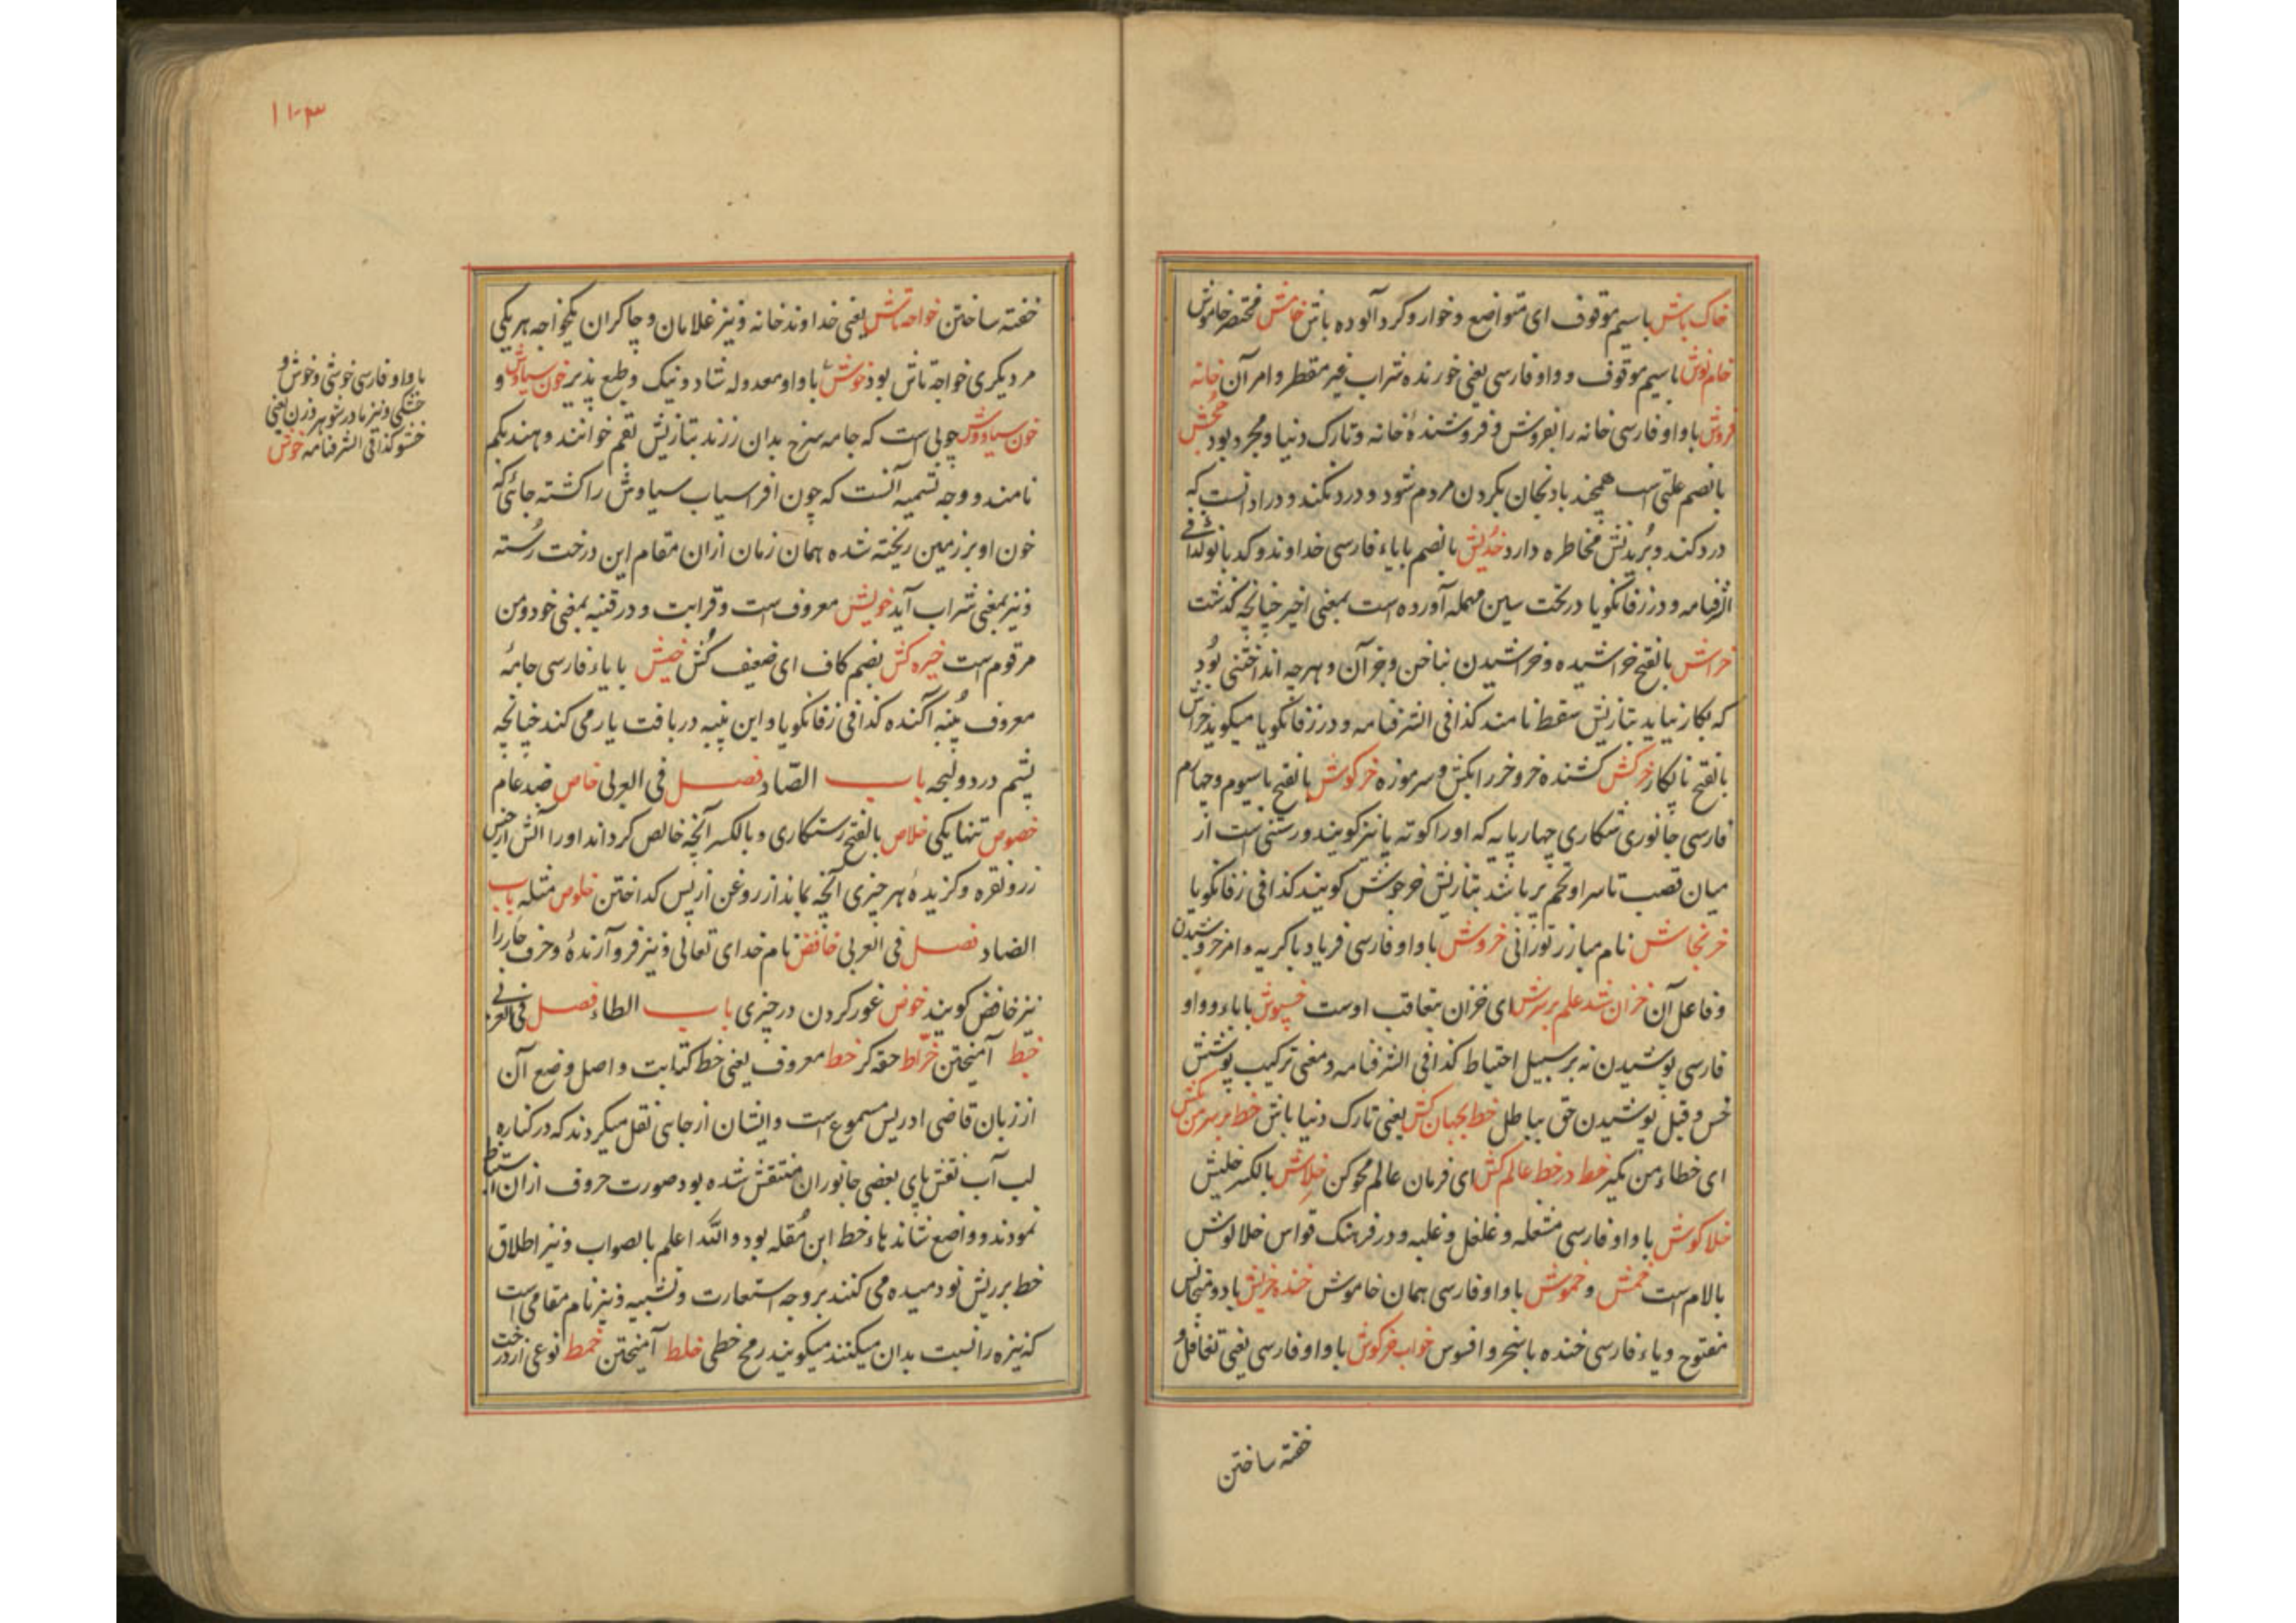 خاک باش باسیم موقوف ای متواضع و خوار و گرد آلوده باش خامش مختصر خاموش
خام نوش باسیم موقوف و واو فارسی یعنی خورنده شراب غیر مقطر و امر آن خانه
فروش باواو فارسی خانه را بفروش و فروشندهٔ خانه و تارک دنیا و مجرد بود
بالضم علتی است همچند بادنجان بگردن مردم شود و درد نکند و در ادانست که
درد کند و بُریدنش مخاطره دارد خُدیش بالضم بایاء فارسی خداوند و کدبانو کذا فی
الشرفنامه و در زفانگویا در تحت سین مهمله آورده است بمعنی اخیر چنانچه گذشت
خراش بالفتح خراشیده و خراشیدن بناخن و جز آن و هرچه انداختنی بُود
که بکار نیاید بتازیش سقط نامند کذا فی الشرفنامه و در زفانگویا میگوید خراش
بالفتح نابکار خرکش کشنده خر و خر را بکش و سرموزه خرگوش بالفتح باسیوم و چهارم
فارسی جانوری شکاری چهارپایه که او را کوته پا نیز گویند و رستنی است از
میان قصب تا سر او تخم بر باشد بتازیش خرجوش گویند کذا فی زفانگویا
خرنجاش نام مبارز تورانی خروش باواو فارسی فریاد باگریه و امر خروشیدن
و فاعل آن خزان شد علم بر سرش ای خزان بتعاقب اوست خسپوش باباء و واو
فارسی پوشیدن نه بر سبیل احتیاط کذا فی الشرفنامه و معنی ترکیب پوشش
خس و قیل پوشیدن حق بباطل خط بجهان کش یعنی تارک دنیا باش خط بر سر من بکش
ای خطاء من مگیر خط در خط عالم کش ای فرمان عالم محو کن خلاش بالکسر خلیش
خلاکوش باواو فارسی مشعله و غلغل و غلبه و در فرهنگ قواس خلالوش
بالام است خمش و خموش باواو فارسی همان خاموش خنده خریش بادو متجانس
مفتوح و یاء فارسی خنده باسخر و افسوس خواب خرگوش باواو فارسی یعنی تغافل و
خفته ساختن
۱۱۰۳
خفته ساختن خواجه تاش یعنی خداوند خانه و نیز غلامان و چاکران یکخواجه هر یکی
مر دیگری خواجه تاش بود خوش باواو معدوله شاد و نیک و طبع پذیر خون سیاوش و
خون سیاووش چوبی است که جامه سرخ بدان رزند بتازیش بقم خوانند و هند پکم
نامند و وجه تسمیه آنست که چون افراسیاب سیاوش را کشته جائی که
خون او بر زمین ریخته شده همان زمان ازان مقام این درخت رُسته
و نیز بمعنی شراب آید خویش معروف است و قرابت و در قنیه بمعنی خود و من
مرقوم است خیره کش بضم کاف ای ضعیف کُش خیش بایاء فارسی جامهٔ
معروف پُنبه آگنده کذا فی زفانگویا و این پنبه در بافت یار می کند چنانچه
پشم در دولیچه باب الصّاد فصل فی العربی خاص ضد عام
خصوص تنها یکی خلاص بالفتح رستگاری و بالکسر آنچه خالص گرداند او را آتش از جنس
زر و نقره و گزیدهٔ هر چیزی آنچه بماند از روغن از پس گداختن خلوص مثله باب
الضاد فصل فی العربی خافض نام خدای تعالی و نیز فرو آرندهٔ و حرف جار را
نیز خافض گویند خوض غور کردن در چیزی باب الطاء فصل فی العربی
خبط آمیختن خرّاط حقه گر خط معروف یعنی خط کتابت و اصل وضع آن
از زبان قاضی ادریس مسموع است و ایشان از جایی نقل میکردند که در کناره
لب آب نقش پای بعضی جانوران منتقش شده بود صورت حروف ازان استنباط
نمودند و واضع نشاندهاء خط ابن مُقله بود والله اعلم بالصواب و نیز اطلاق
خط بر ریش نو دمیده می کنند بر وجه استعارت و تشبیه و نیز نام مقامی است
که نیزه را نسبت بدان میکنند میگویند رمح خطی خلط آمیختن خمط نوعی از درخت
باواو فارسی خوشی و خوش و
خشکی و نیز مادر شوهر و زن یعنی
خشو کذا فی الشرفنامه خوش